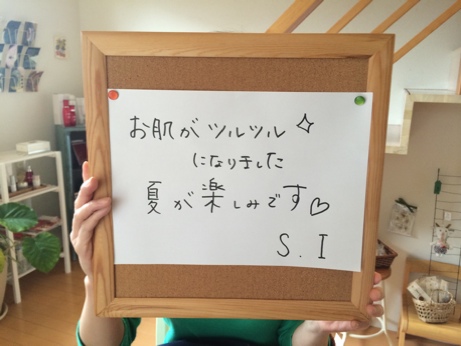 お肌がツルツル✧
になりました
夏が楽しみです♡
S.I